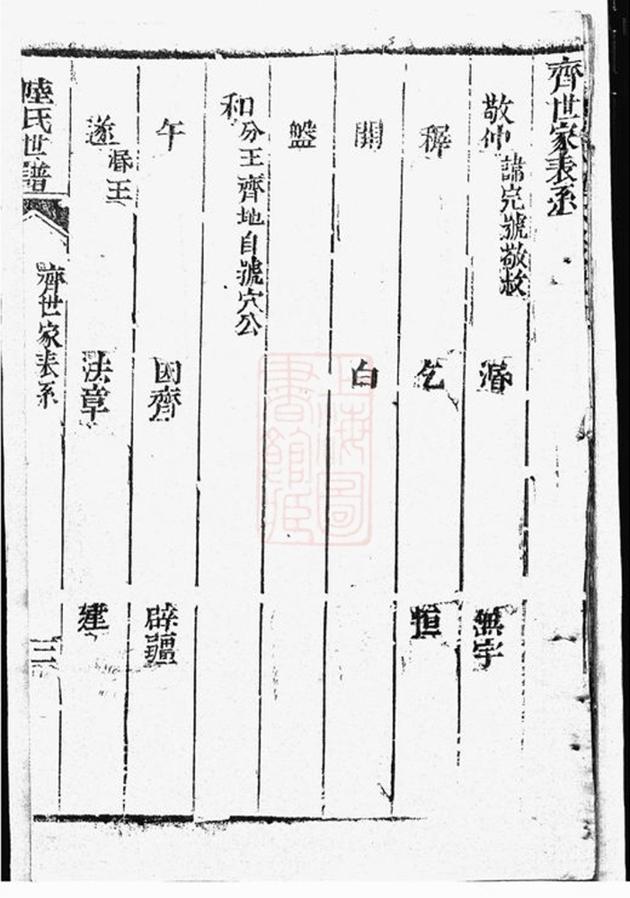 齊世家表系
敬仲 諱完號敬敘 湣 無宇
穉 乞 恒
開 白
盤
和 分王齊地自號穴公
午 因齊 辟疆
遂 湣王 法章 建
陸氏世譜 齊世家表系 三
上海圖書館藏